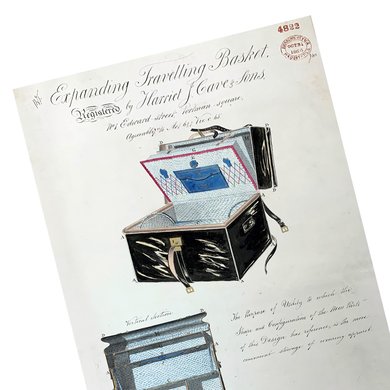 4822
OCT 31
Expanding Travelling Basket.
Registered by Harriet J Cave & Sons.
No 1 Edward Street Portman Square.
Agreeably to Act 6 & 7 Vic C 65
Vertical Section
The Purpose of Utility to which the
Shape and Configuration of the New Parts
of this Design has reference, is the more
convenient stowage of wearing apparel